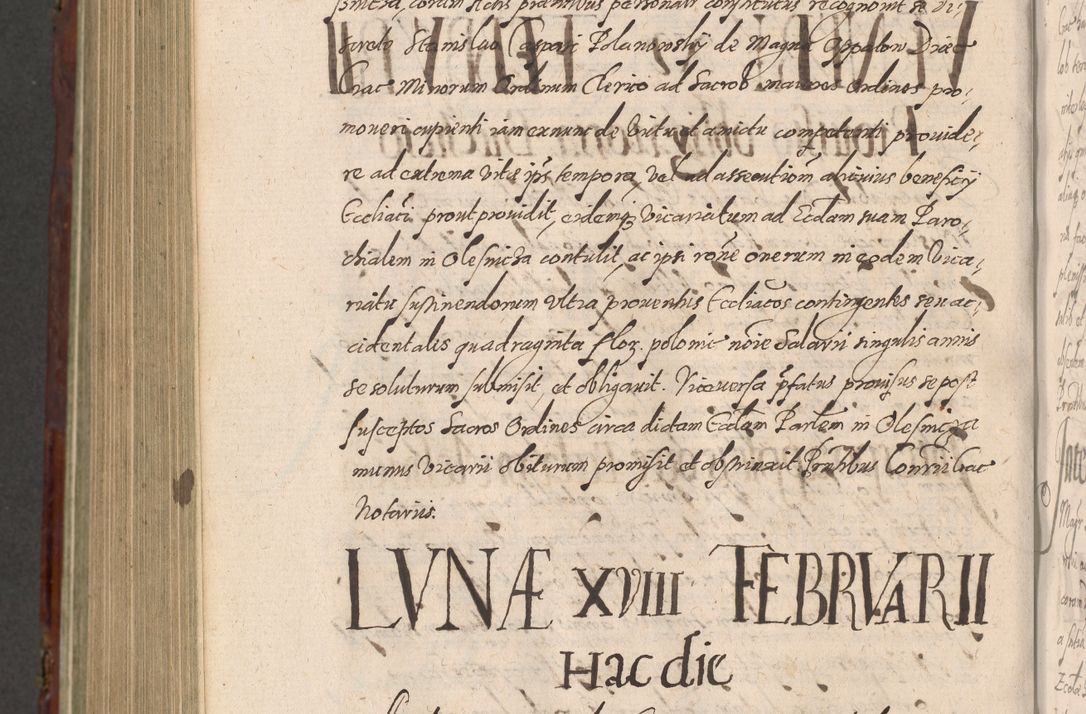 psentia, coram Actis praesentibus personalr constitutus recognovit se Di,
screto Stanislao Caspari Polanowskij de Magna Oppalow Dioec
Crac Minorum Ordinum Clerico ad Sacros maiores Ordines pro,
moveri cupienti iam exnunc de Victu et amictu competenti provide,
re ad extrema Vitæ ips tempora Vel ad assecutiom alicuius beneficij
Eccliaci prout providit, eidemq Vicariatum ad Eccłam suam Paro,
chialem in Olesnicza contulit, ac ipsi rone onerum in eodem Vica,
riatu sustinendorum Ultra proventus Eccliacos contingentes seu ac,
cidentalis quadraginta flor. polonic noie Salarii singulis annis
se soluturum submisit, et obligavit. Viceversa pfatus provisus se post
susceptos Sacros Ordines circa dictam Eccłam Parłem in Olesnicza
munus Vicarii obiturum promisit et obstrinxit Pntibus Conrii Crac
Notariis.
LVNÆ XVIII FEBRVARII
Hac die